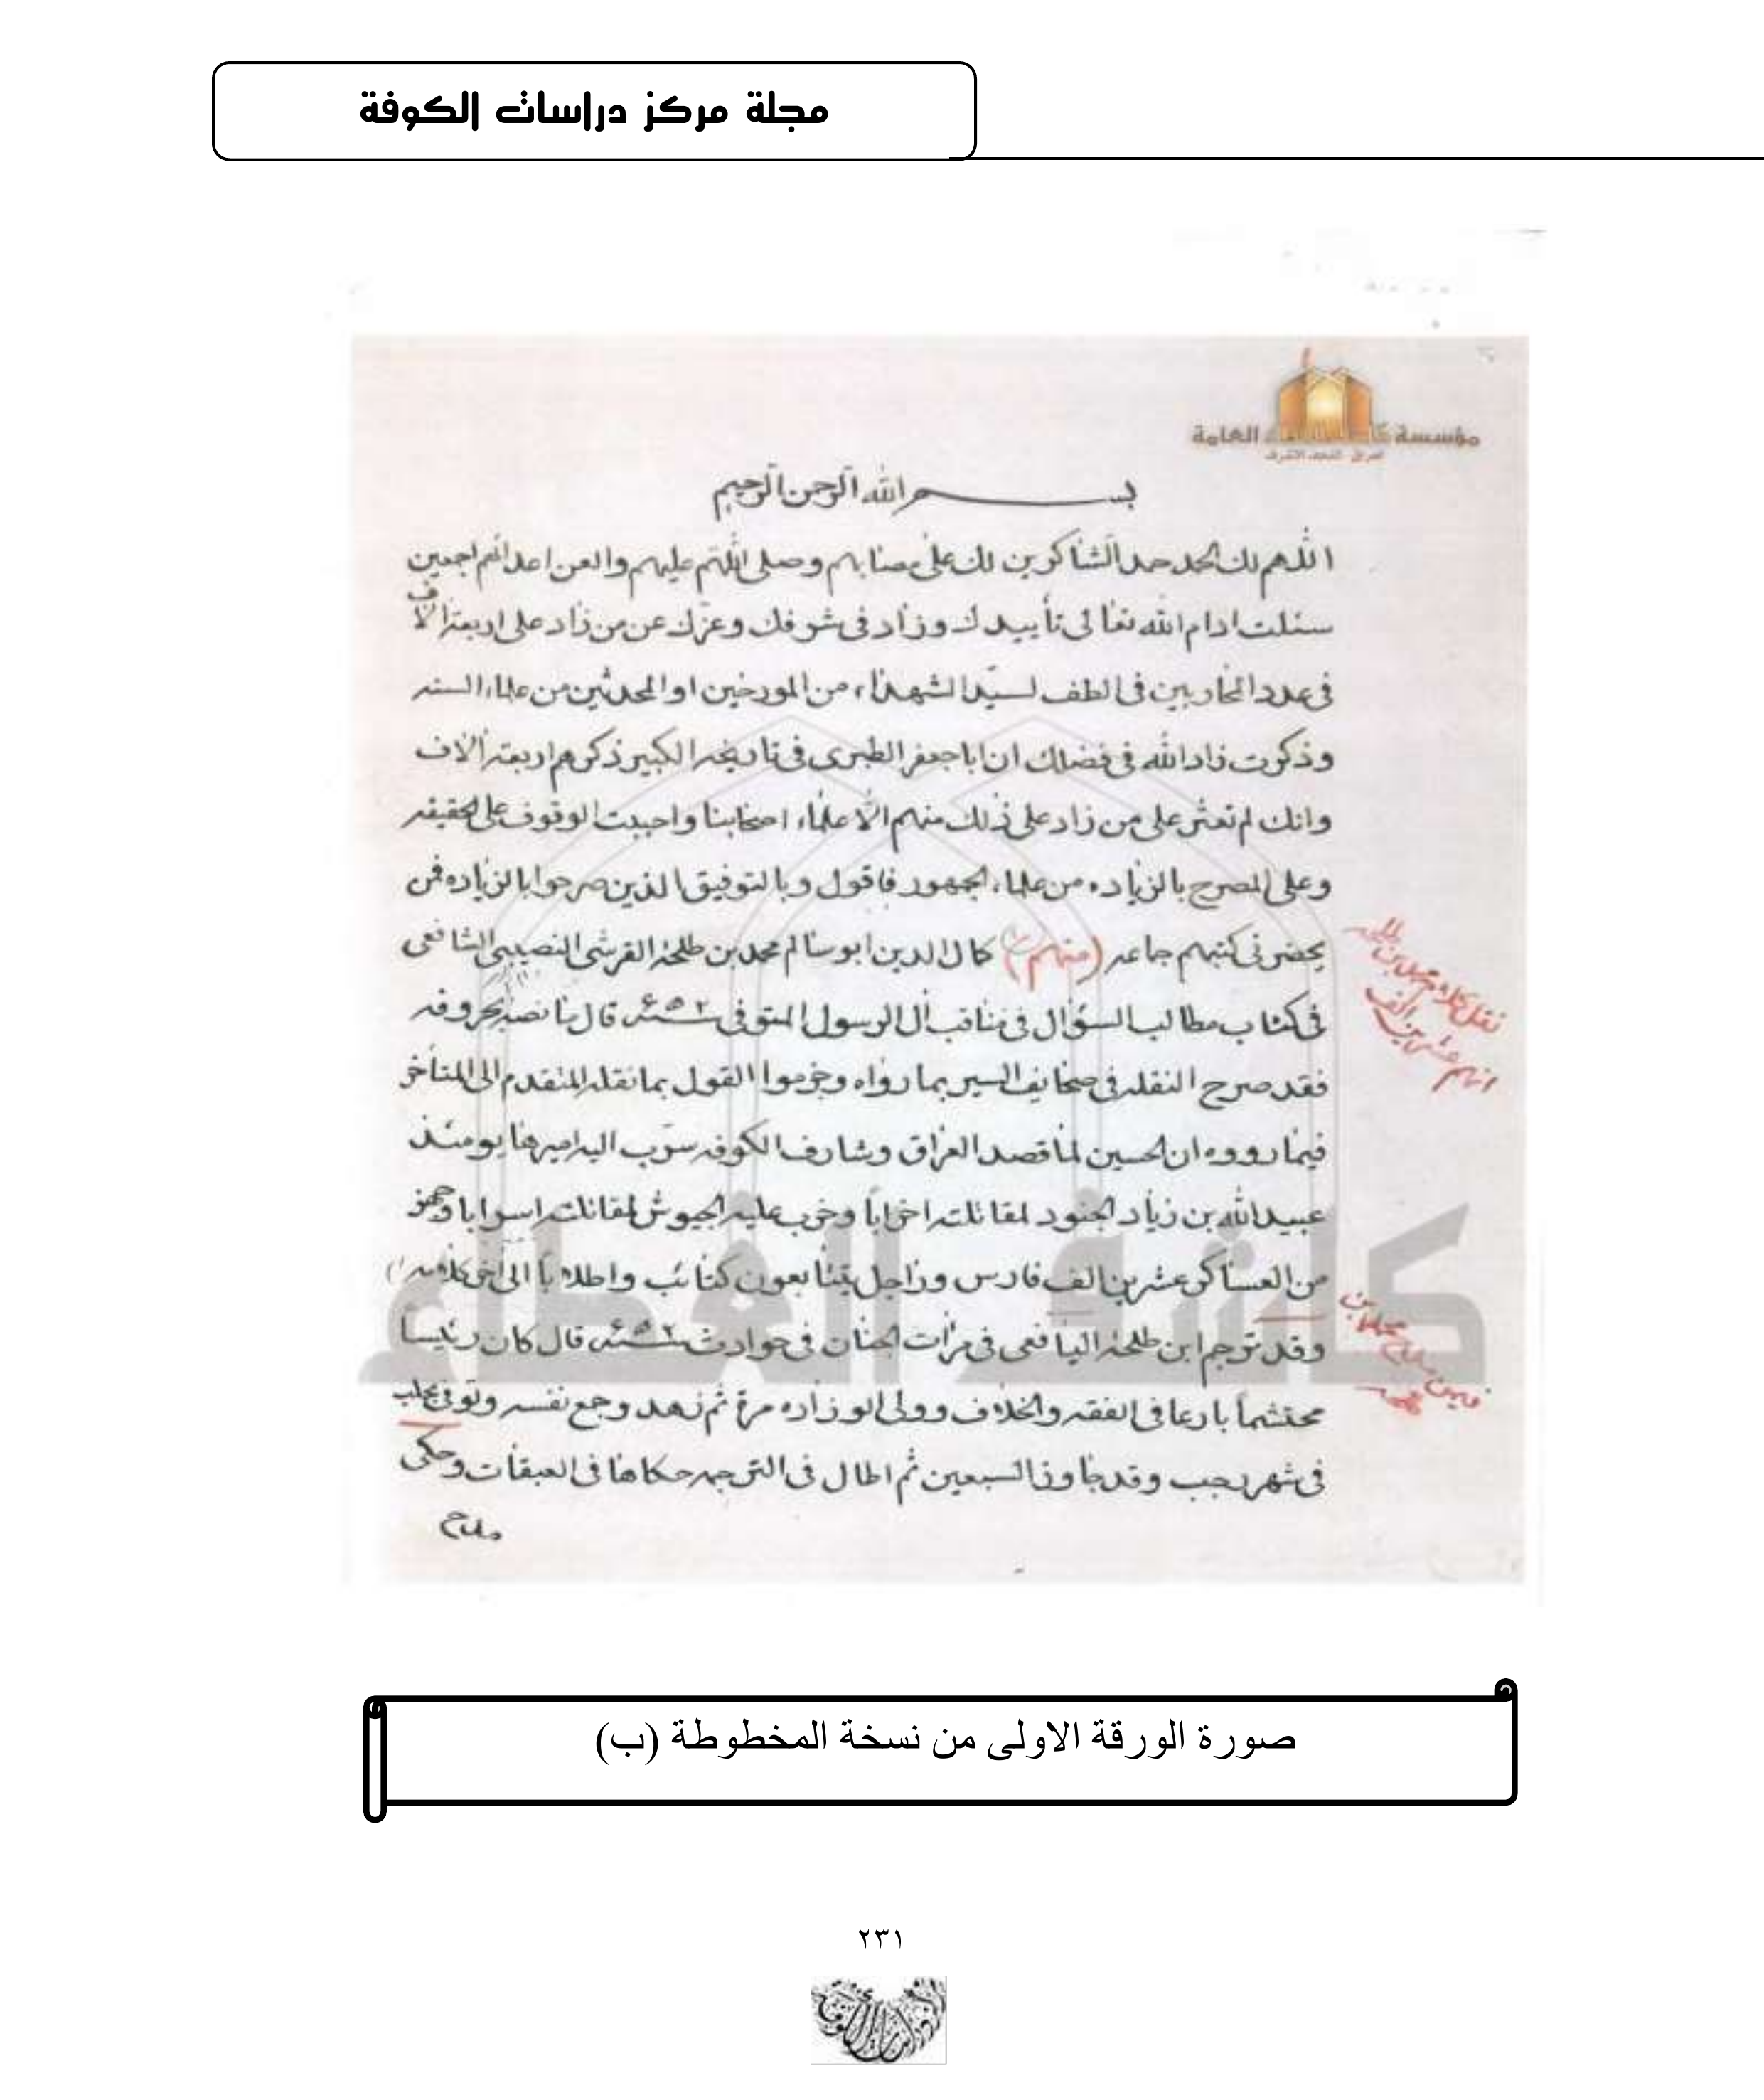 مجلة مركز دراسات الكوفة
مؤسسة العامة
العراق النجف الاشرف
بسم الله الرحمن الرحيم
اللهم لك الحمد حمد الشاكرين لك على مصابهم وصلى اللهم عليهم والعن اعدائهم اجمعين
سئلت ادام الله تعالى تأييدك وزاد فى شرفك وعزك عن من زاد على اربعة الاف
فى عدد المحاربين فى الطف لسيد الشهداء من المورخين او المحدثين من علماء السنه
وذكرت زاد الله فى فضلك ان ابا جعفر الطبرى فى تاريخه الكبير ذكرهم اربعة الاف
وانك لم تعثر على من زاد على ذلك منهم الا علماء اصحابنا واحببت الوقوف على الحقيقه
وعلى المصرح بالزياده من علماء الجمهور فاقول وبالتوفيق الذين صرحوا بالزياده فمن
يحضرنى كتبهم جماعه (منهم) كمال الدين ابو سالم محمد بن طلحة القرشى النصيبى الشافعى
فى كتاب مطالب السؤال فى مناقب آل الرسول المتوفى سنة ٦٥٢ قال ما نصه بحروفه
فقد صرح النقله فى صحايف السير بما رواه وجزموا القول بما نقله المتقدم الى المتأخر
فيما رووه ان الحسين لما قصد العراق وشارف الكوفه سرب اليه اميرها يومئذ
عبيد الله بن زياد الجنود لمقاتلته احزابا وحزب عليه الجيوش لمقاتلته اسرابا وجهز
من العساكر عشرين الف فارس وراجل يتتابعون كتائب واطلابا الى آخر كلامه
وقد ترجم ابن طلحة اليافعى فى مرآت الجنان فى حوادث سنة ٦٥٢ قال كان رئيسا
محتشما بارعا فى الفقه والخلاف وولى الوزاره مرة ثم زهد وجمع نفسه وتوفى بحلب
فى شهر رجب وقد جاوز السبعين ثم اطال فى الترجمه حكاها فى العبقات وحكى
مدح
نقل كلام محمد بن
انهم عشرين الف
فيمن مدح محمد بن
طلحه
كاشف الغطاء
صورة الورقة الاولى من نسخة المخطوطة (ب)
٢٣١